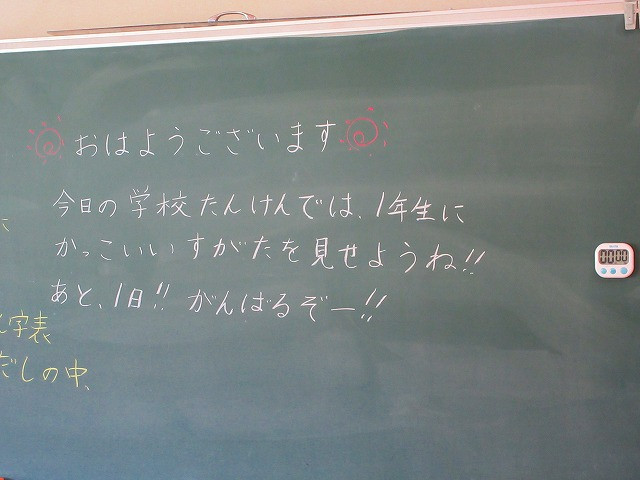 おはようございます
今日の学校たんけんでは、1年生に
かっこいいすがたを見せようね!!
あと、1日!! がんばるぞー!!
字表
だしの中、
0000